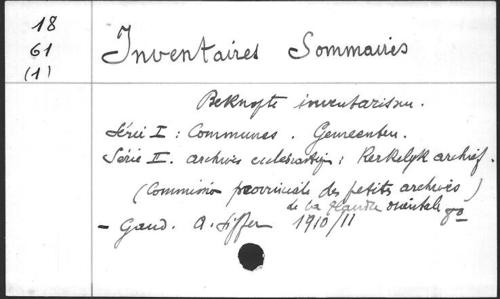 18
61
(1)
Inventaires Sommaires
Beknopte inventarissen.
Série I : Communes. Gemeenten.
Série II. archives ecclésiastiq: Kerkelyk archief.
(Commission provinciale des petits archives)
de la Flandre orientale
- Gand. A. Siffer 1910/11 8o